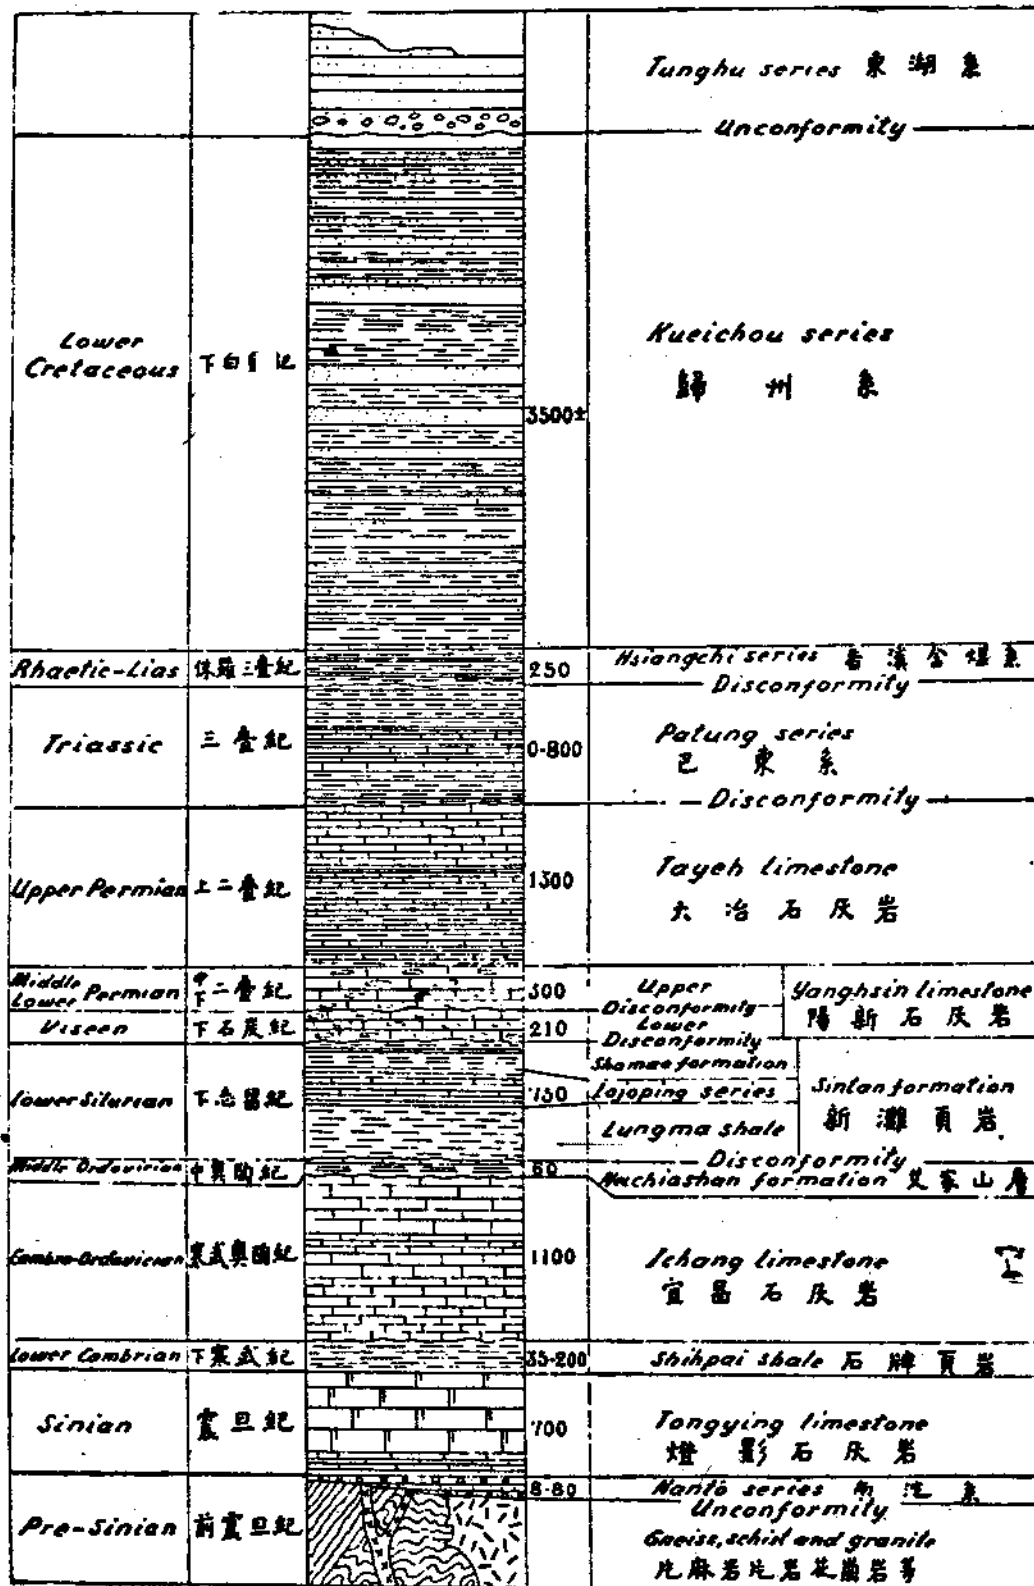 Tunghu series 東湖系
Unconformity
Lower Cretaceous 下白堊紀 3500± Kueichou series
歸州系
Rhaetic-Lias 侏羅三疊紀 250 Hsiangchi series 香溪含煤系
Disconformity
Triassic 三疊紀 0-800 Patung series
巴東系
Disconformity
Upper Permian 上二疊紀 1300 Tayeh limestone
大冶石灰岩
Middle Lower Permian 中下二疊紀 300 Upper Yanghsin limestone
Disconformity 陽新石灰岩
Viseen 下石炭紀 210 Lower
Disconformity
Shamao formation
Lower Silurian 下志留紀 750 Lojoping series Sintan formation
Lungma shale 新灘頁岩
Disconformity
Middle Ordovician 中奧陶紀 60 formation 艾家山層
Cambro-Ordovician 寒武奧陶紀 1100 Ichang limestone
宜昌石灰岩
Lower Cambrian 下寒武紀 35-200 Shihpai shale 石牌頁岩
Sinian 震旦紀 700 Tongying limestone
燈影石灰岩
8-80 Nanto series 南沱系
Unconformity
Pre-Sinian 前震旦紀 Gneiss, schist and granite
片麻岩片岩花崗岩等